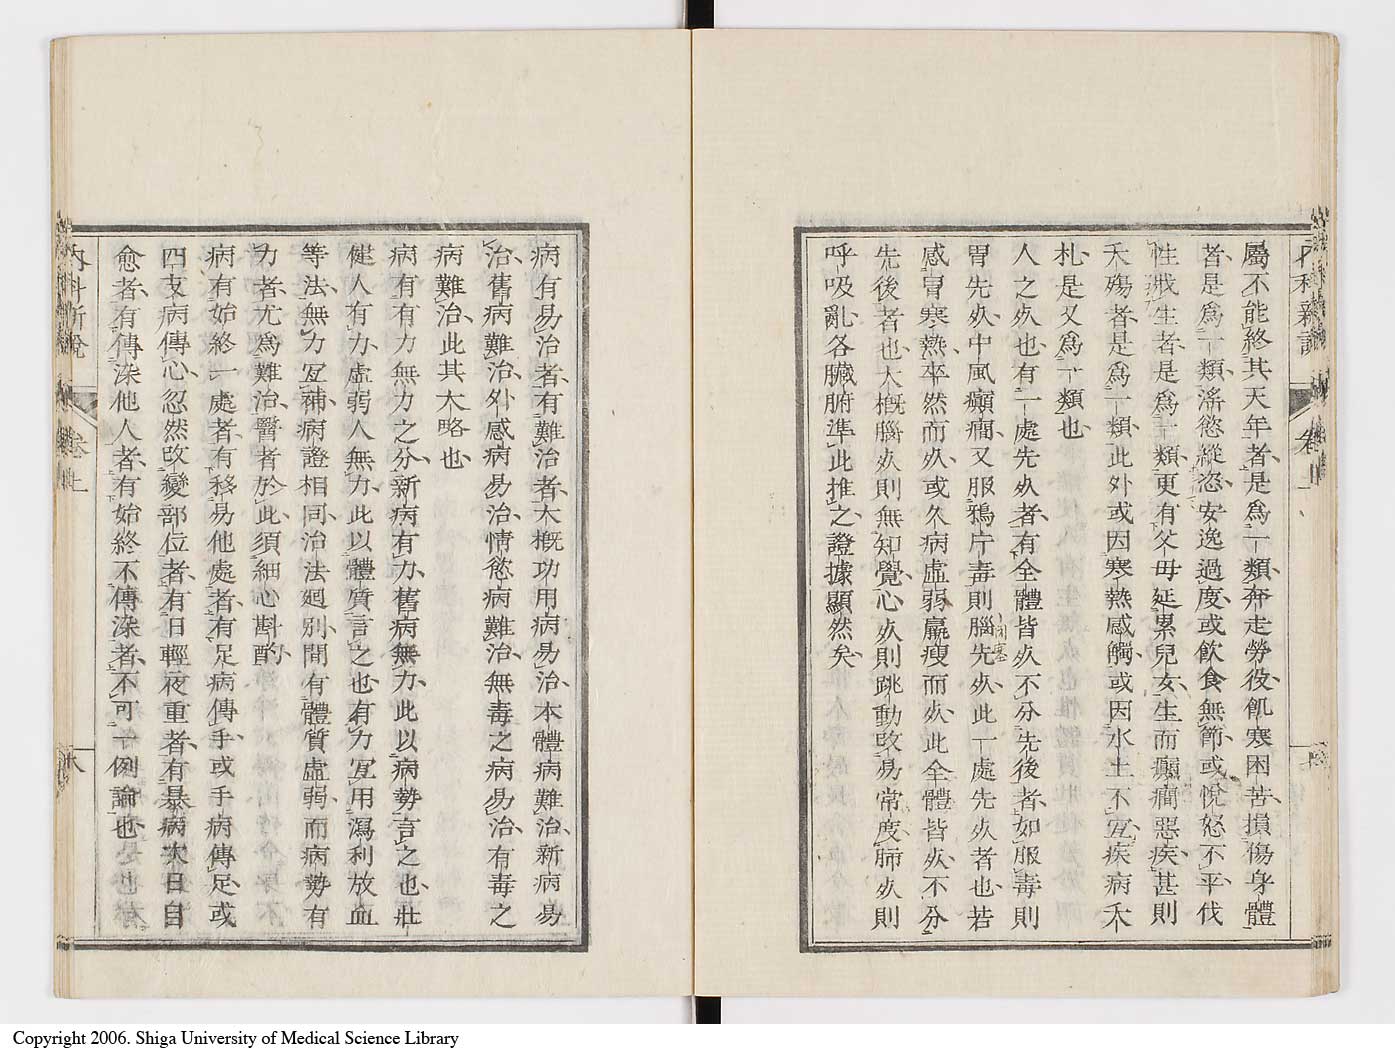 內科新說
卷上
屬不能終其天年者是爲一類奔走勞役飢寒困苦損傷身體
者是爲一類滛慾縱恣安逸過度或飲食無節或悅怒不平伐
性戕生者是爲一類更有父母延累兒女生而癲癇惡疾甚則
夭殤者是爲一類此外或因寒熱感觸或因水土不宜疾病夭
札是又爲一類也
人之死也有一處先死者有全體皆死不分先後者如服毒則
胃先死中風癲癇又服鴉片毒則腦先死此一處先死者也若
感冒寒熱卒然而死或久病虛弱羸瘦而死此全體皆死不分
先後者也大槪腦死則無知覺心死則跳動改易常度肺死則
呼吸亂各臟腑準此推之證據顯然矣
病有易治者有難治者大槪功用病易治本體病難治新病易
治舊病難治外感病易治情慾病難治無毒之病易治有毒之
病難治此其大略也
病有有力無力之分新病有力舊病無力此以病勢言之也壯
健人有力虛弱人無力此以體質言之也有力宜用瀉利放血
等法無力宜補病證相同治法廻別間有體質虛弱而病勢有
力者尤爲難治醫者於此須細心斟酌
病有始終一處者有移易他處者有足病傳手或手病傳足或
四支病傳心忽然改變部位者有日輕夜重者有暴病次日自
愈者有傳染他人者有始終不傳染者不可一例論也
內科新說
卷上
八
Copyright 2006. Shiga University of Medical Science Library